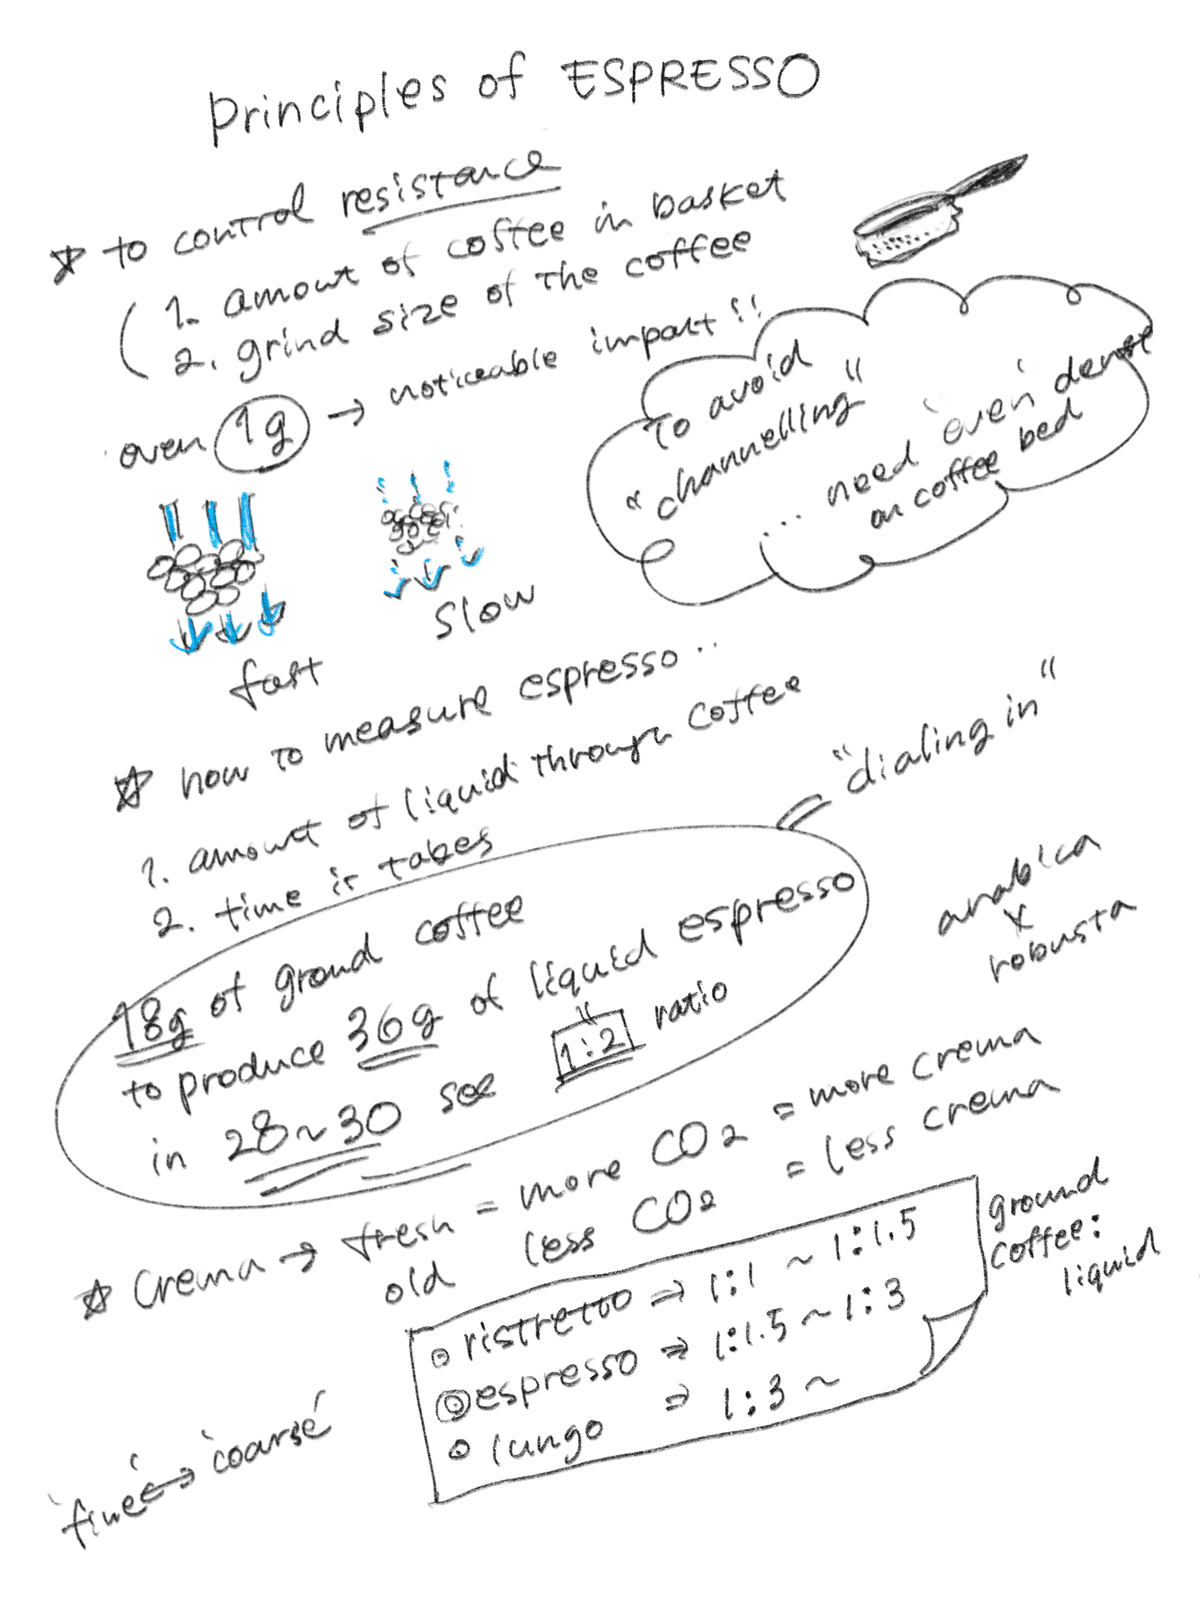 Principles of ESPRESSO
☆ to control resistance
( 1. amount of coffee in basket
2. grind size of the coffee
even 1g → noticeable impact!!
To avoid
"channelling"
... need 'even' dense
on coffee bed
fast
slow
☆ how to measure espresso..
1. amount of liquid through coffee
2. time it takes
"dialing in"
18g of ground coffee
to produce 36g of liquid espresso
1:2 ratio
in 28~30 sec
arabica
x
robusta
☆ Crema → fresh = more CO2 = more crema
old less CO2 = less crema
ristretto ⇒ 1:1 ~ 1:1.5
espresso ⇒ 1:1.5 ~ 1:3
lungo ⇒ 1:3 ~
ground
coffee:
liquid
'fine' ↔ 'coarse'